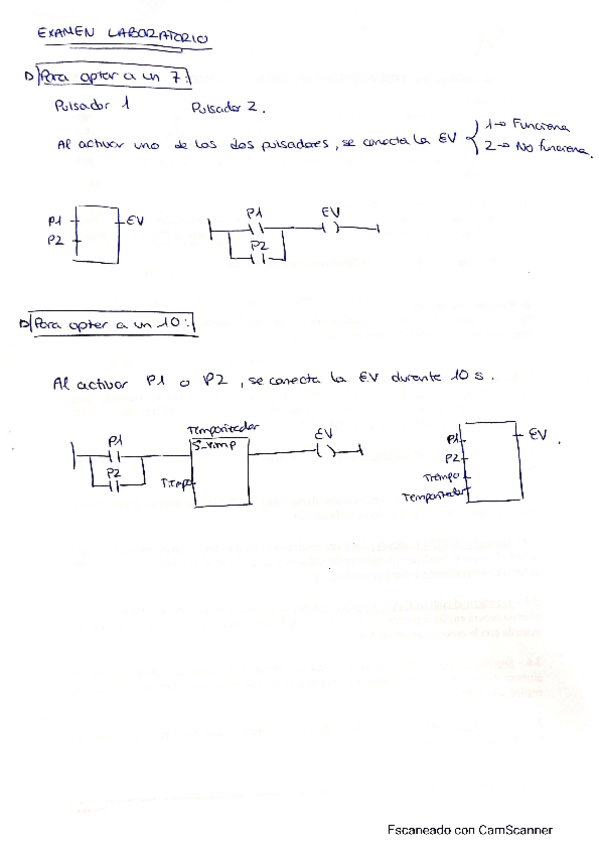 EXAMEN LABORATORIO
1) Para optar a un 7:
Pulsador 1 Pulsador 2.
Al activar uno de los dos pulsadores, se conecta la EV { 1→ Funciona
2→ No funciona.
P1 EV
P2
P1 EV
P2
2) Para opter a un 10:
Al activar P1 o P2, se conecta la EV durante 10 s.
Temporizador
P1 EV
P2
P1 EV.
P2
Tiempo
Temporizador
Escaneado con CamScanner